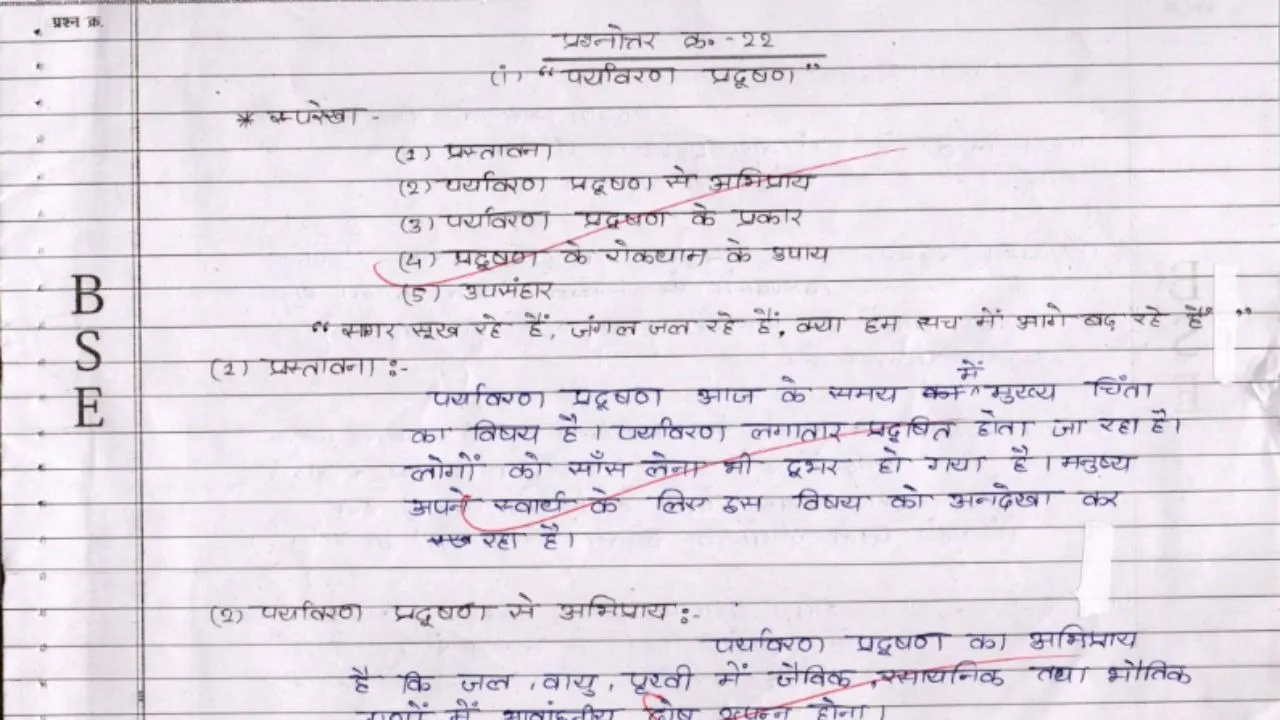 प्रश्न क्र.
प्रश्नोत्तर क्र.-22
(i) "पर्यावरण प्रदूषण"
* रूपरेखा -
(1) प्रस्तावना
(2) पर्यावरण प्रदूषण से अभिप्राय
(3) पर्यावरण प्रदूषण के प्रकार
(4) प्रदूषण के रोकथाम के उपाय
(5) उपसंहार
"सागर सूख रहे हैं, जंगल जल रहे हैं, क्या हम सच में आगे बढ़ रहे हैं"
(1) प्रस्तावना :-
पर्यावरण प्रदूषण आज के समय में मुख्य चिंता
का विषय है। पर्यावरण लगातार प्रदूषित होता जा रहा है।
लोगों को साँस लेना भी दूभर हो गया है। मनुष्य
अपने स्वार्थ के लिए इस विषय को अनदेखा कर
रहा है।
(2) पर्यावरण प्रदूषण से अभिप्राय :-
पर्यावरण प्रदूषण का अभिप्राय
है कि जल, वायु, पृथ्वी में जैविक, रसायनिक तथा भौतिक
गुणों में अवांछनीय दोष उत्पन्न होना।
BSE